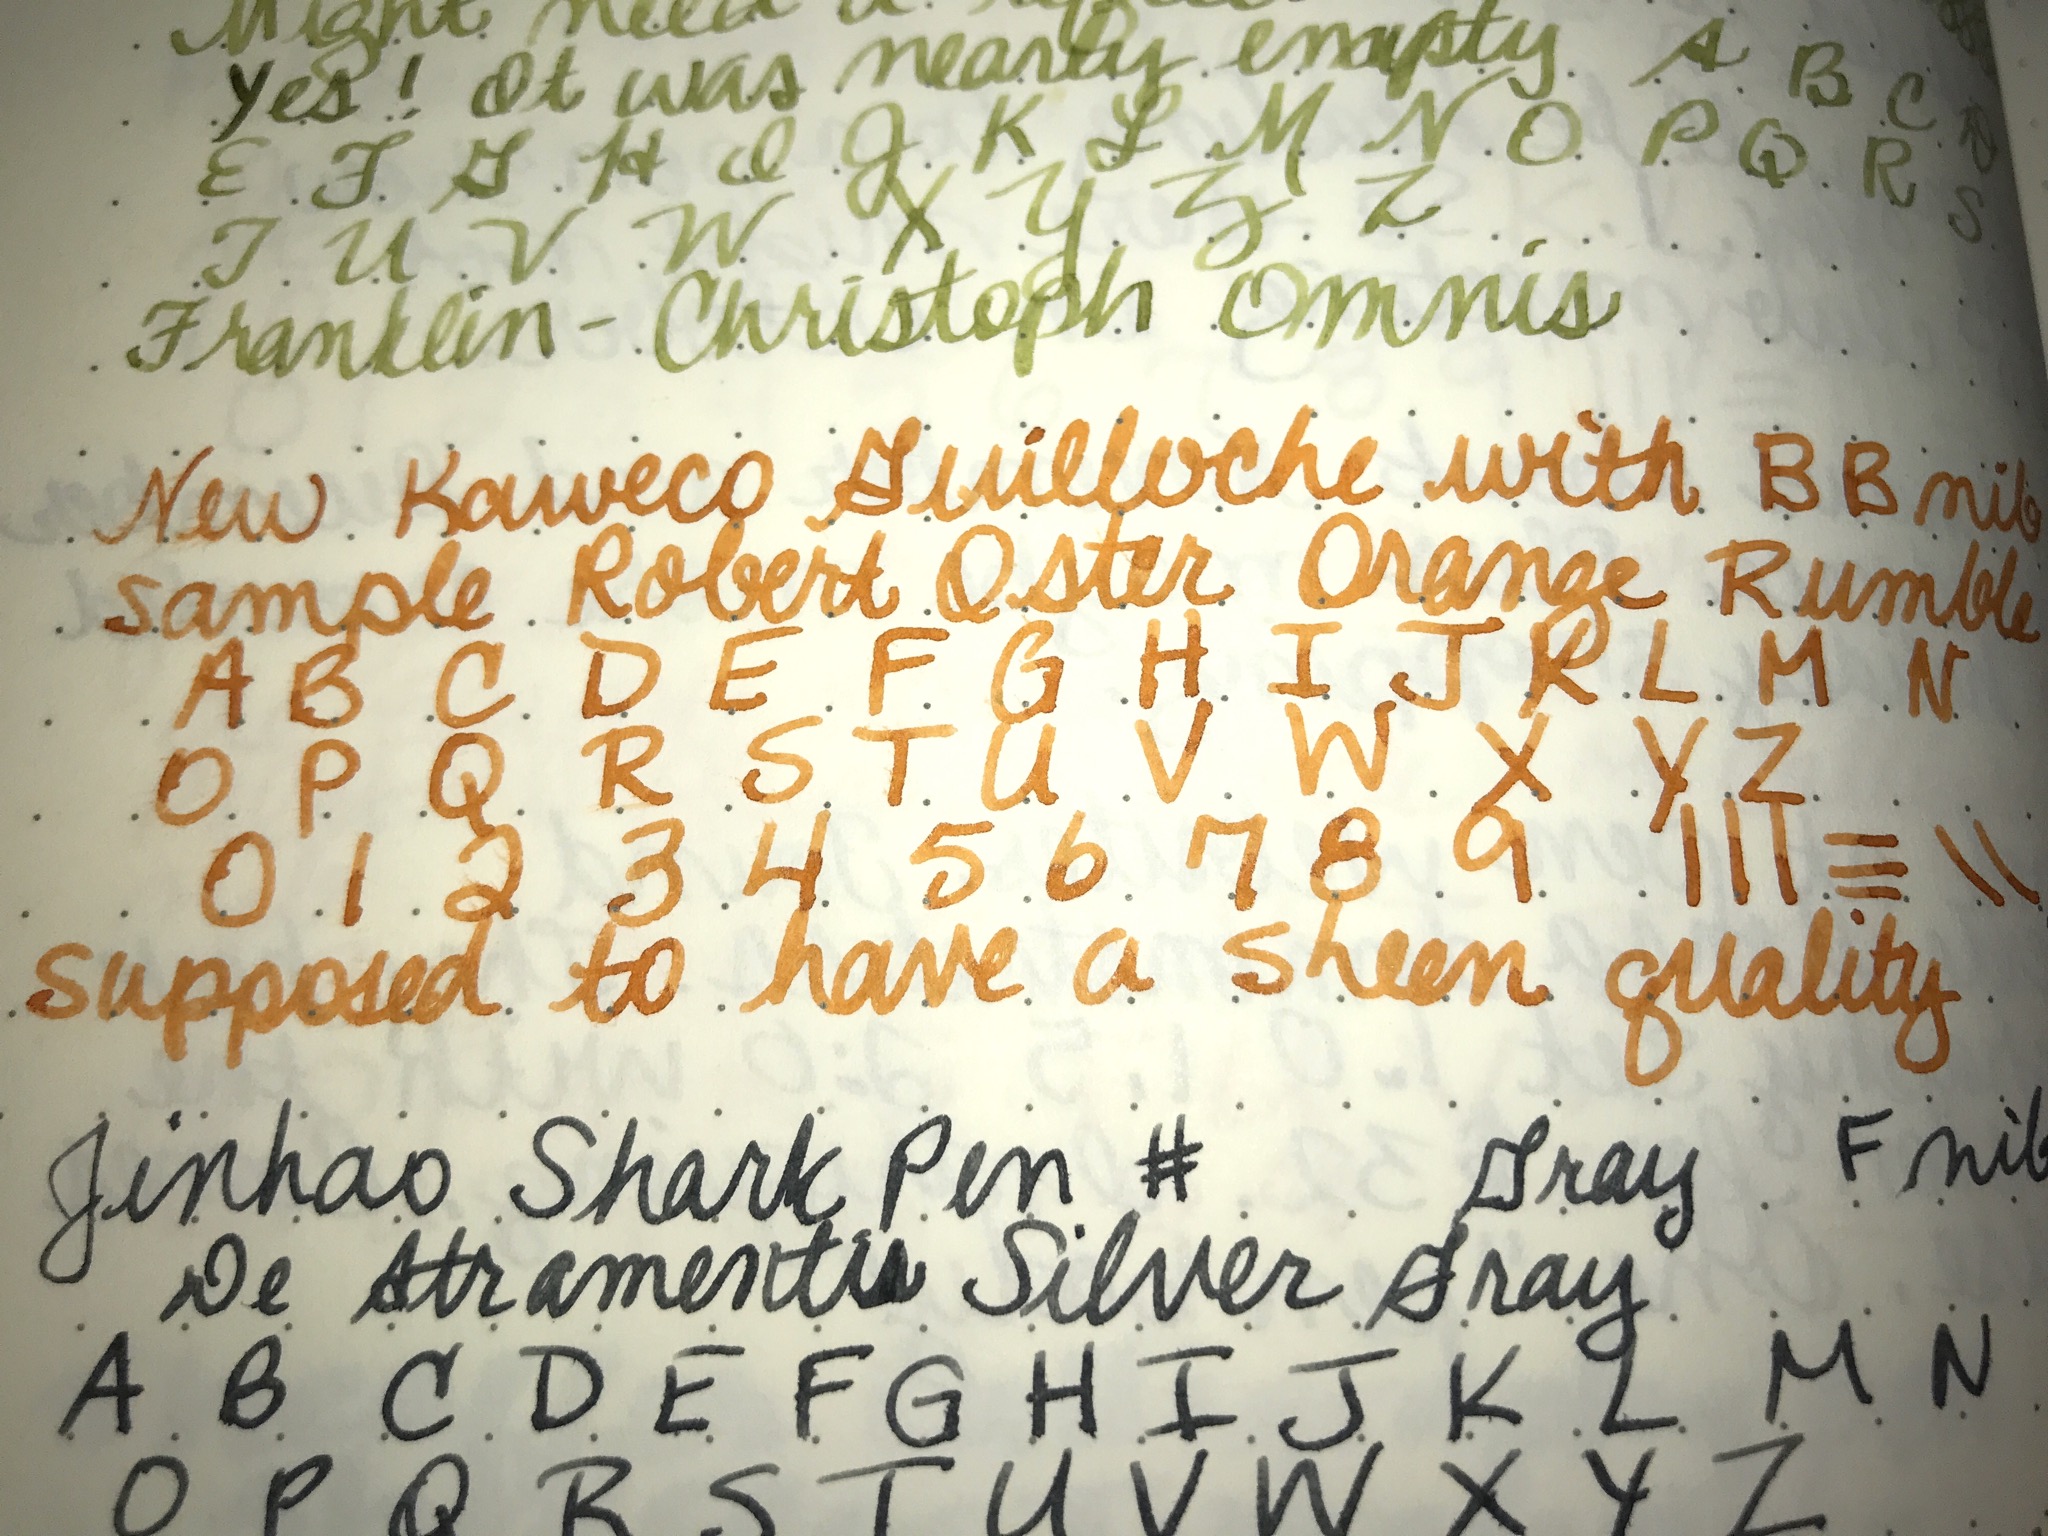 Might need a
Yes! It was nearly empty A B C
E F G H I J K L M N O P Q R S
T U V W X Y Z Z
Franklin-Christoph Omnis
New Kaweco Guilloche with BB nib
sample Robert Oster Orange Rumble
A B C D E F G H I J K L M N
O P Q R S T U V W X Y Z
0 1 2 3 4 5 6 7 8 9
supposed to have a sheen quality
Jinhao Shark Pen # Gray F nib
De Atramentis Silver Gray
A B C D E F G H I J K L M N
O P Q R S T U V W X Y Z